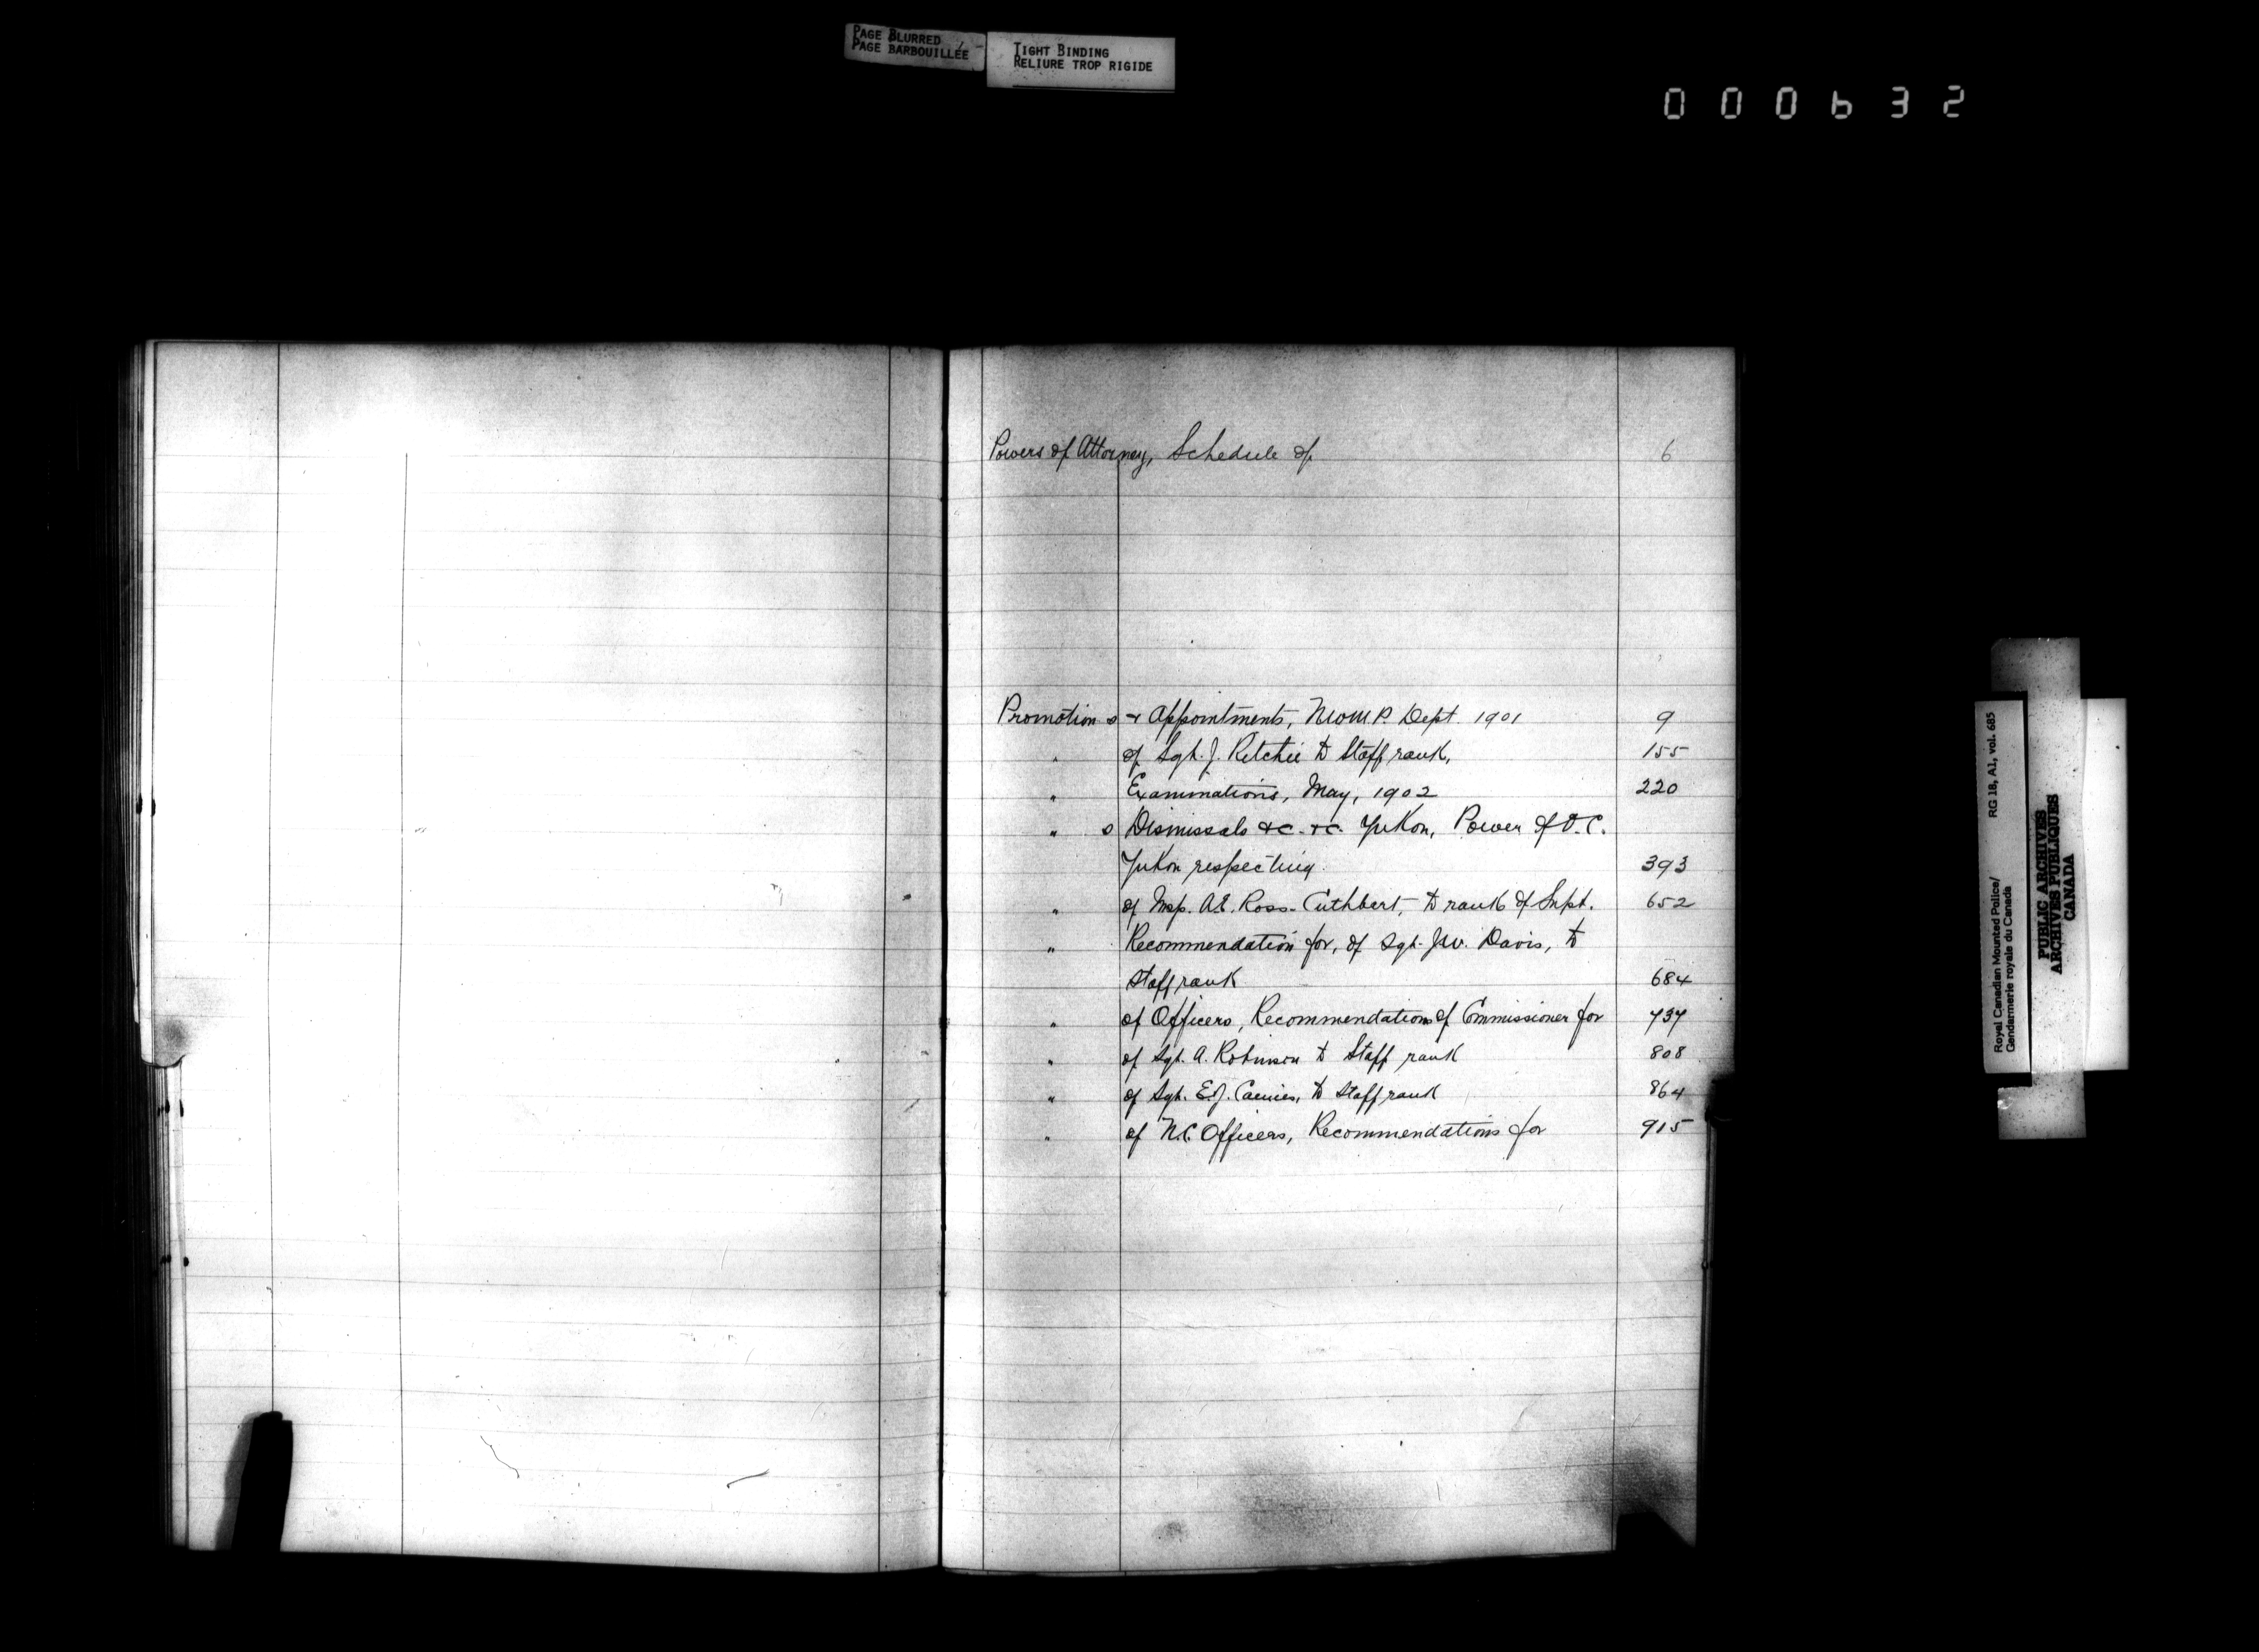 PAGE BLURRED
PAGE BARBOUILLÉE
TIGHT BINDING
RELIURE TROP RIGIDE
000632
Powers of Attorney, Schedule of 6
Promotions & Appointments, N.W.M.P. Dept. 1901 9
" of Sgt. J. Ritchie to Staff rank, 155
" Examinations, May, 1902 220
" s Dismissals &c. &c. Yukon, Power of O.C.
Yukon respecting. 393
" of Insp. A.E. Ross-Cuthbert, to rank of Supt. 652
" Recommendation for, of Sgt. J.W. Davis, to
Staff rank 684
" of Officers, Recommendations of Commissioner for 737
" of Sgt. A. Robinson to Staff rank 808
" of Sgt. E.J. to Staff rank 864
" of N.C. Officers, Recommendations for 915
Royal Canadian Mounted Police/ RG 18, A1, vol. 685
Gendarmerie royale du Canada
PUBLIC ARCHIVES
ARCHIVES PUBLIQUES
CANADA